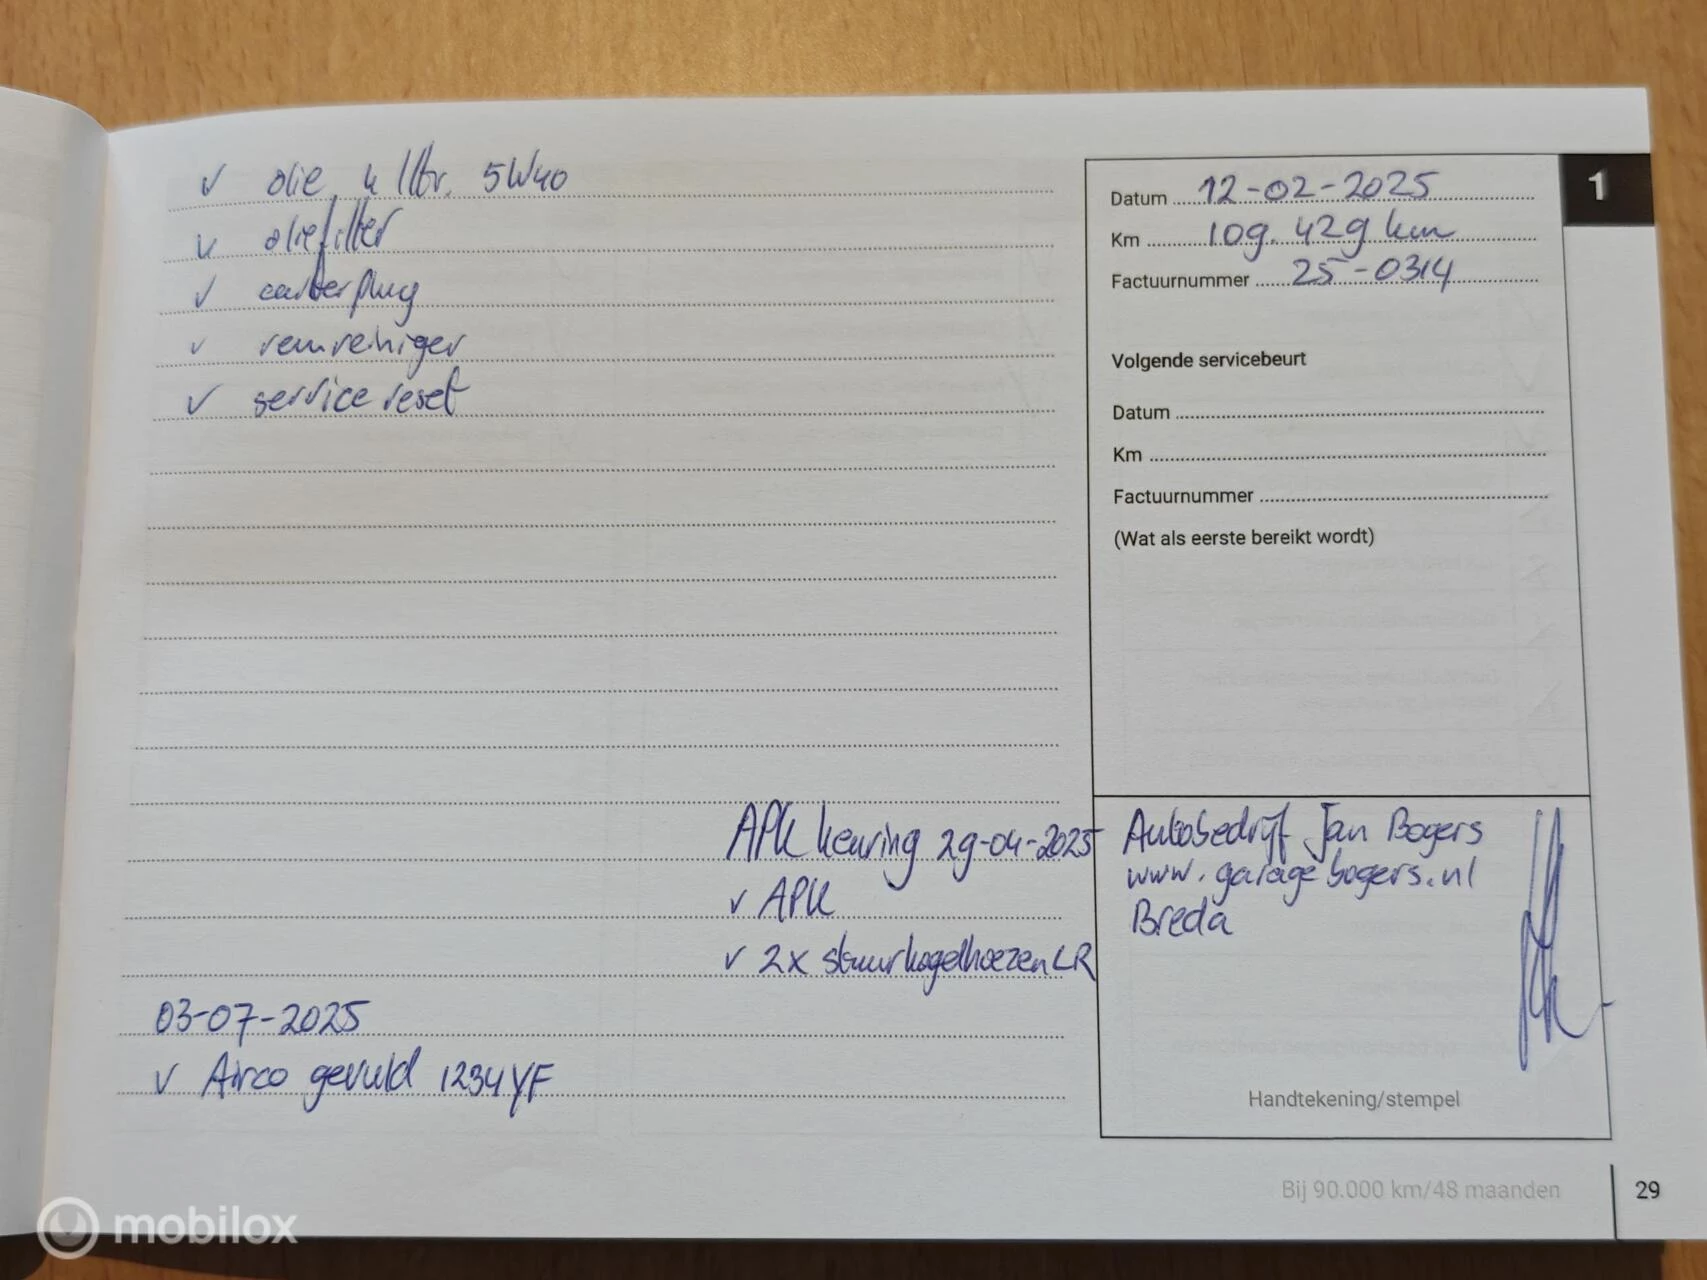 ✓ olie 4 ltr. 5W40
✓ oliefilter
✓ carterplug
✓ remreiniger
✓ service reset
APK keuring 29-04-2025
✓ APK
✓ 2x stuurkogelhoezen LR
03-07-2025
✓ Airco gevuld 1234YF
1
Datum 12-02-2025
Km 109.429 km
Factuurnummer 25-0314
Volgende servicebeurt
Datum
Km
Factuurnummer
(Wat als eerste bereikt wordt)
Autobedrijf Jan Bogers
www.garagebogers.nl
Breda
Handtekening/stempel
Bij 90.000 km/48 maanden
29
mobilox